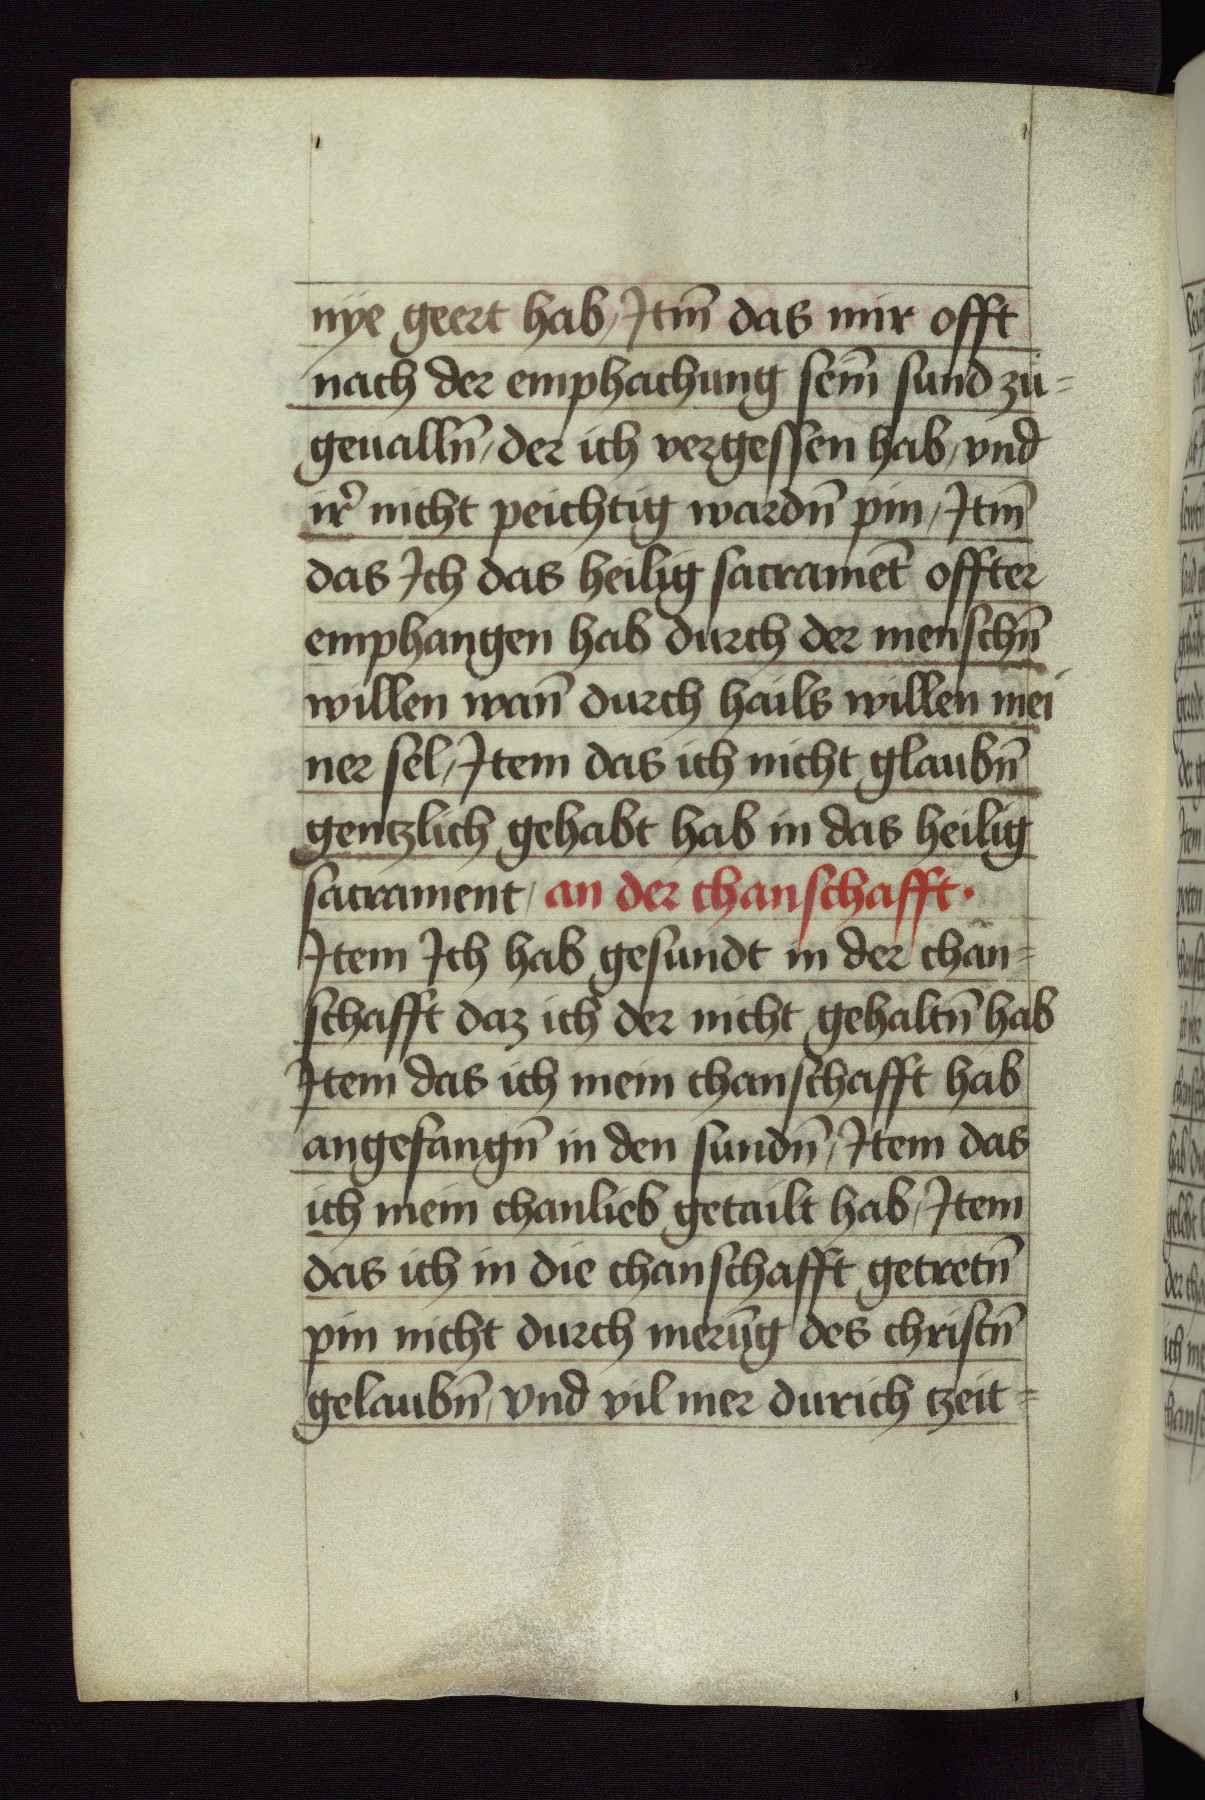 nye geert hab / Itm̄ das mir offt
nach der emphachung sem̄ sund zu=
geualln̄ / der ich vergessen hab / vnd
ir̄ nicht peichtig wardn̄ pin / Itm̄
das Ich das heilig sacramēt offter
emphangen hab durch der menschn̄
willen wan̄ durch hails willen mei
ner sel / Item das ich nicht glaubn̄
gentzlich gehabt hab in das heilig
sacrament / an der chanschafft ·
Item Ich hab gesundt in der chan=
schafft daz ich der nicht gehaltn̄ hab
Item das ich mein chanschafft hab
angefangn̄ in den sundn̄ / Item das
ich mein chanlieb getailt hab / Item
das ich in die chanschafft getretn̄
pin nicht durch merūg des christn̄
gelaubn̄ / vnd vil mer durich tzeit=